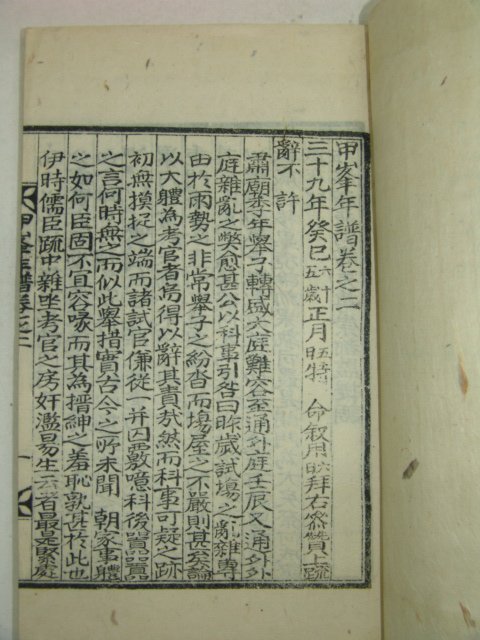 甲峯年譜卷之二
三十九年癸巳六十五歲正月五特 命敘用 拜右參贊上疏
辭不許
肅廟季年擧子轉盛大庭難容至通外庭壬辰又通外
庭雜亂之弊愈甚公以科事引咎曰昨歲試場之亂雜專
由於兩勢之非常擧子之紛沓而場屋之不嚴則甚矣論
以大體爲考官者烏得以辭其責哉然而科事可疑之跡
初無摸捉之端而諸試官傔從一幷囚覈噫科後囂囂
之言何時無之而似此擧措實古今之所未聞 朝家事體
之如何臣固不宜容喙而其爲搢紳之羞恥孰甚於此也
伊時儒臣疏中雜坐考官之房奸濫易生云者最爲緊處
甲峯年譜卷之二
一